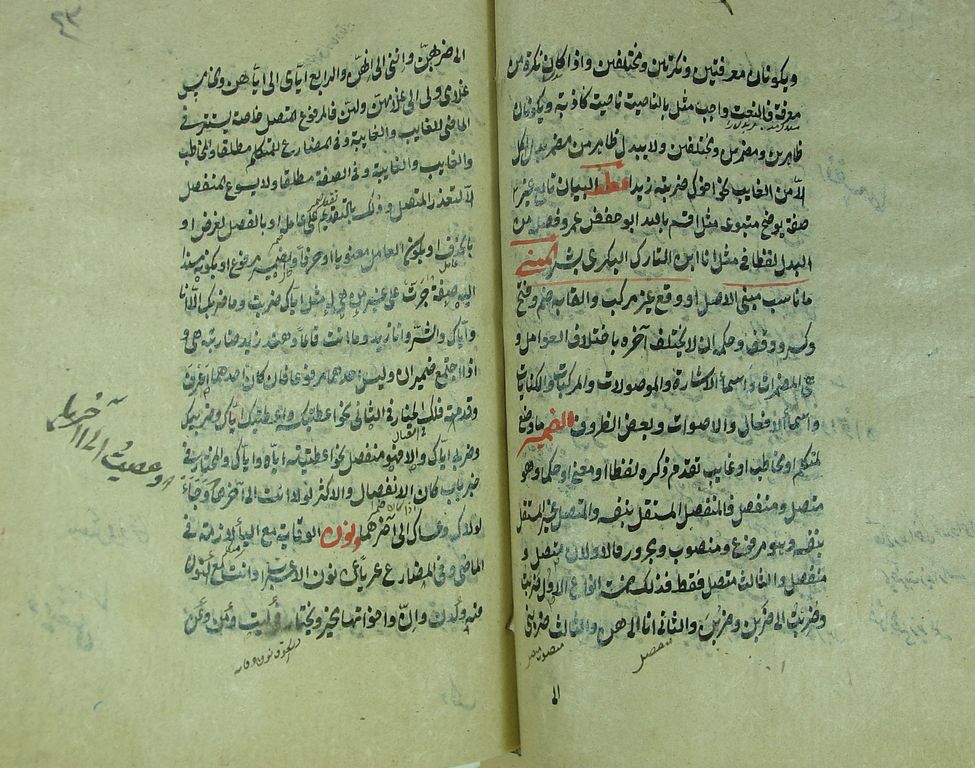 ويكونان معرفتين ونكرتين ومختلفين واذا كان نكرة من
معرفة فالنعت واجب مثل بالناصية ناصية كاذبة ويكونان
ظاهرين ومضمرين ومختلفين ولا يبدل ظاهر من مضمر بدل الكل
الا من الغايب نحو ضربته زيدا عطف البيان تابع غير
صفة يوضح متبوعه مثل اقسم بالله ابو حفص عمر وفصله من
البدل لفظا في مثل انا ابن التارك البكري بشر المبني
ما ناسب مبني الاصل او وقع غير مركب والقابه ضم وفتح
وكسر ووقف وحكمه ان لا يختلف آخره باختلاف العوامل و
هي المضمرات واسماء الاشارة والموصولات والمركبات والكنايات
واسماء الافعال والاصوات وبعض الظروف المضمر ما وضع
لمتكلم او مخاطب او غايب تقدم ذكره لفظا او معنى او حكما وهو
متصل ومنفصل فالمنفصل المستقل بنفسه والمتصل غير المستقل
بنفسه وهو مرفوع ومنصوب ومجرور فالاولان متصل و
منفصل والثالث متصل فقط فذلك خمسة انواع الاول ضربت
وضربت الى ضربن وضربن والثاني انا الى هن والثالث ضربني
منفصل
الى
الى ضربهن وانني الى انهن والرابع اياي الى اياهن والخامس
غلامي ولي الى غلامهن ولهن فالمرفوع المتصل خاصة يستتر في
الماضي للغايب والغايبة وفي المضارع للمتكلم مطلقا والمخاطب
والغايب والغايبة وفي الصفة مطلقا ولا يسوغ المنفصل
الا لتعذر المتصل وذلك بالتقديم على عامله او بالفصل لغرض او
بالحذف او بكون العامل معنويا او حرفا والضمير مرفوع او بكونه مسندا
اليه صفة جرت على غير من هي له مثل اياك ضربت وما ضربك الا انا
واياك والشر وانا زيد وما انت قائما وهند زيد ضاربته هي و
اذا اجتمع ضميران وليس احدهما مرفوعا فان كان احدهما اعرف
وقدمته فلك الخيار في الثاني نحو اعطيتكه واعطيتك اياه وضربيك
وضربي اياك والا فهو منفصل نحو اعطيته اياه واياك والمختار في
خبر باب كان الانفصال والاكثر لولا انت الى آخرها وجاء
لولاك وعساك الى آخرهما ونون الوقاية مع الياء لازمة في
الماضي وفي المضارع عريا عن نون الاعراب وانت مع النون
فيه ولدن وان واخواتها مخير ويختار في ليت ومن وعن
وعسيت الى آخرها